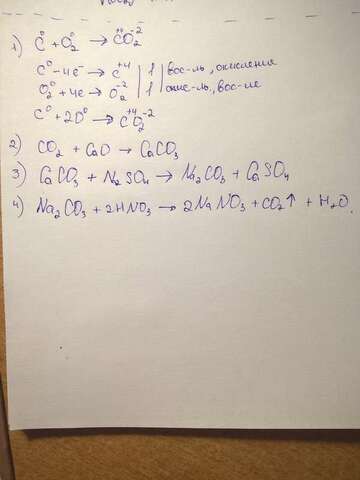 1) C⁰ + O₂⁰ → C⁺⁴O₂⁻²
C⁰ - 4e⁻ → C⁺⁴ | 1 | вос-ль, окисления
O₂⁰ + 4e → O₂⁻² | 1 | окис-ль, вос-ие
C⁰ + 2O⁰ → C⁺⁴O₂⁻²
2) CO₂ + CaO → CaCO₃
3) CaCO₃ + Na₂SO₄ → Na₂CO₃ + CaSO₄
4) Na₂CO₃ + 2HNO₃ → 2NaNO₃ + CO₂↑ + H₂O.